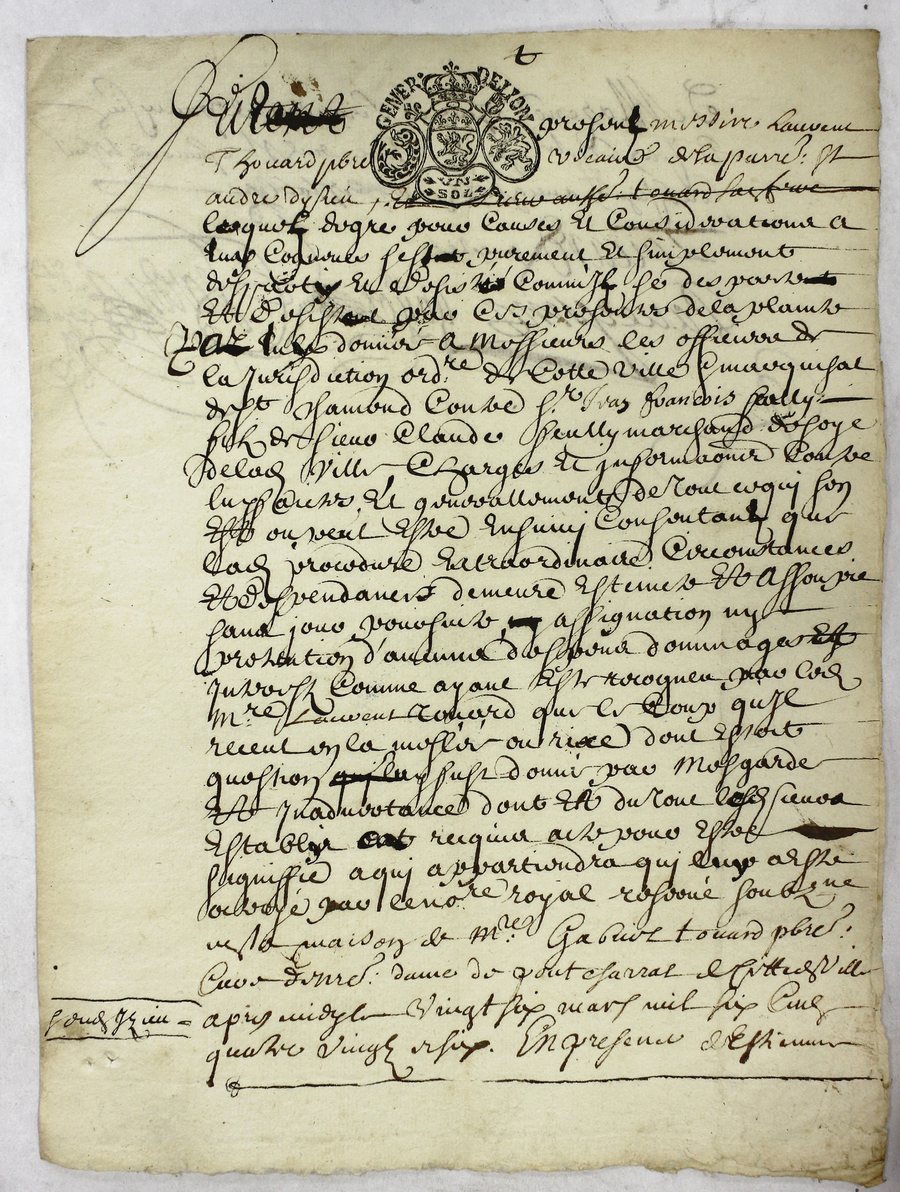 GENER. DE LYON
UN SOL
present messire Laurent
Thouard pbre vicaire de la parre: St
andre dysieu
lequel de gre pour Causes Et Considerations a
luy Cognues sest purement Et simplement
desisté Comme Il se despart
Et desiste par Ces presentes de la plainte
par luy donnée a Messieurs les officiers de
la Jurisdiction ordre de Cette Ville Et marquisat
de St Chamond Contre sr Jean francois
filz de sieur Claude marchand de soye
de lad Ville, Charges Et Informaons Contre
luy faictes, Et generallement de tout ce quj sen
Est ou peut Estre Ensuivj Consentant que
lad procedure Extraordinaire Circonstances
Et despendances demeure Esteinte Et Assoupie
sans pour poursuite, assignation ny
pretention d'aucuns despens dommages Et
Interestz Comme ayant Esté recogneu par led
Mre Laurent touard que le Coup qu'Il
receut en la meslée ou rixe dont Estoit
question fust donné par Mesgarde
Et Inadvertance dont Et du tout lesd sieurs
Establys ont requis acte pour Estre
signiffié a quj appartiendra quj leur a Esté
octroyé par le nore royal reservé soubzne
en la maison de Mre Gabriel touard pbre:
Curé d'Enre: dame de pont charrat de Cette d Ville
apres midy le Vingt six mars mil six Cens
quatre Vingtz et six. En presence d'Estienne